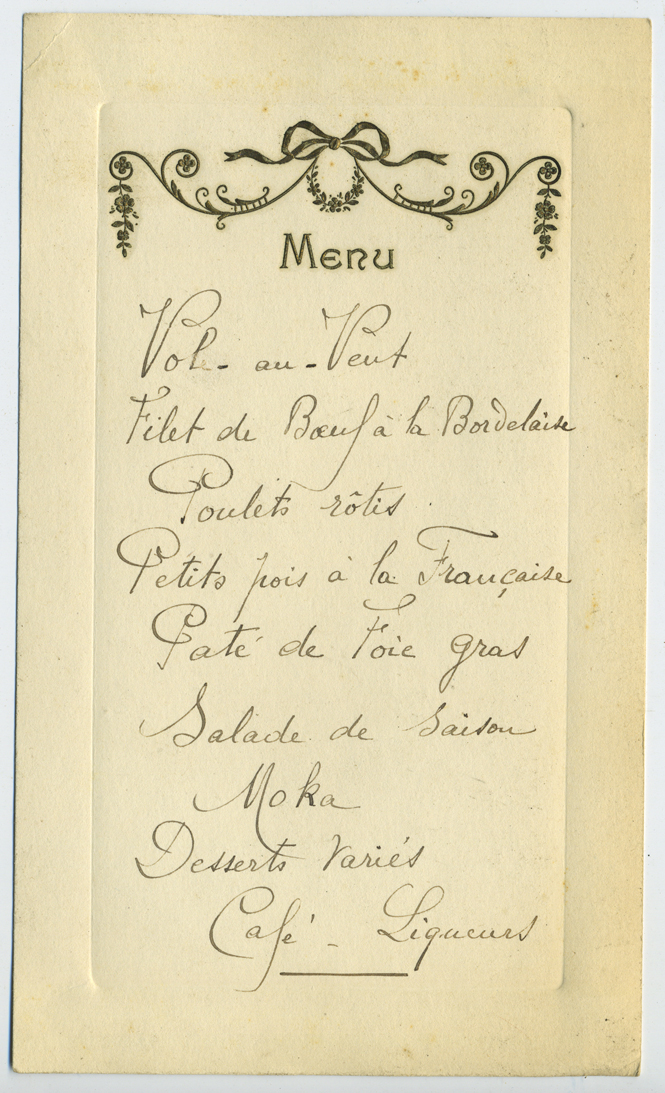 Menu
Vol-au-Vent
Filet de Bœuf à la Bordelaise
Poulets rôtis
Petits pois à la Française
Paté de Foie gras
Salade de Saison
Moka
Desserts Variés
Café - Liqueurs